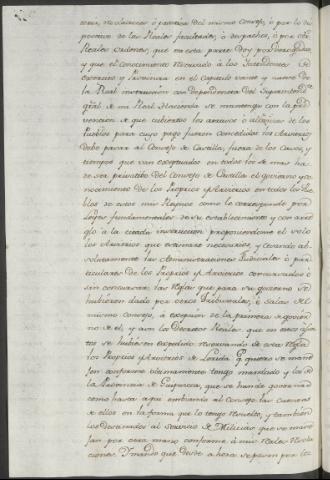 ocia, ó
positiva de las Reales facultades, ó despachos, ó por otras
Reales ordenes, que en esta parte doy por derogadas,
y que el conocimiento reservado à los Intendentes de
Exercito y Provincia en el capitulo veinte y nueve de
la Real instruccion con dependencia del Superintende
gral de mi Real Hacienda se mantenga con la pre
vencion de que cubiertos los arreos ó alcances de los
Pueblos para cuyo pago fueron concedidos los Arvitrios
debe pasar al Consejo de Castilla, fuera de los casos, y
tiempos que van exceptuados en todos los de mas ha
de ser privativo del Consejo de Castilla el govierno y co
nocimiento de los Propios y Arvitrios en todos los Pue
blos de estos mis Reynos como le corresponde por
Leyes fundamentales de su establecimiento y con arre
glo à la citada instruccion proponiendome el solo
los Arvitrios que estimare necesarios y cesando ab
solutamente las Administraciones Judiciales ó par
ticulares de los Propios y Arvitrios concursados ó
sin concursar, las Reglas que para su govierno se
hubieren dado por otros Tribunales, ó Salas del
mismo consejo, à excepcion de la primera de govier
no de el, y aun los Decretos Reales que en otros
se hubieren expedido reservando de esta Regla
los Propios y Arvitrios de Lerida q. quiero se mane
jen conforme ultimamente tengo mandado y los de
la Provincia de Guipuzcoa, que se han de governar
como hasta aqui embiando al consejo las cuentas
de ellos en la forma que lo tengo resuelto, y tambien
los destinados al servicio de Milicias que se mane
jan por otra mano conforme à mis Reales Resolu
ciones. Y mando que desde ahora se pasen por los